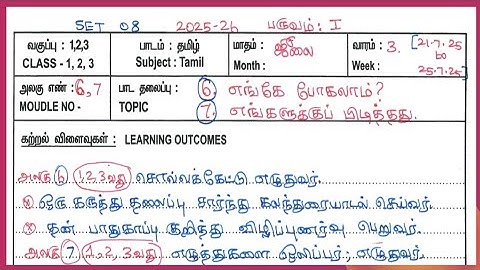 SET 08 2025-26 பருவம் : I
வகுப்பு : 1,2,3 பாடம் : தமிழ் மாதம் : ஜூலை வாரம் : 3. [21.7.25
CLASS - 1, 2, 3 Subject : Tamil Month : Week : to
25.7.25]
அலகு எண் : 6,7 பாட தலைப்பு : 6. எங்கே போகலாம்?
MOUDLE NO - TOPIC 7. எங்களுக்குப் பிடித்தது.
கற்றல் விளைவுகள் : LEARNING OUTCOMES
அலகு 6 1,2,3வது சொல்வதைக்கேட்டு எழுதுவர்.
ஒரு கருத்து தலைப்பு சார்ந்து கலந்துரையாடல் செய்வர்.
தன் பாதுகாப்பு குறித்து விழிப்புணர்வு பெறுவர்.
அலகு 7, 1, 2, 3வது எழுத்துகளை ஒலிப்பர்; எழுதுவர்.